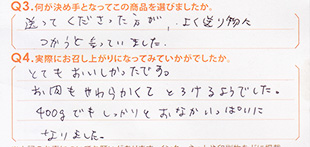 Q3.何が決め手となってこの商品を選びましたか。
送って くださった方が、よく送り物に
つかうと言っていました。
Q4.実際にお召し上がりになってみていかがでしたか。
とてもおいしかったです。
お肉もやわらかくて とろけるようでした。
400gでもしっかりとおなかいっぱいに
なりました。